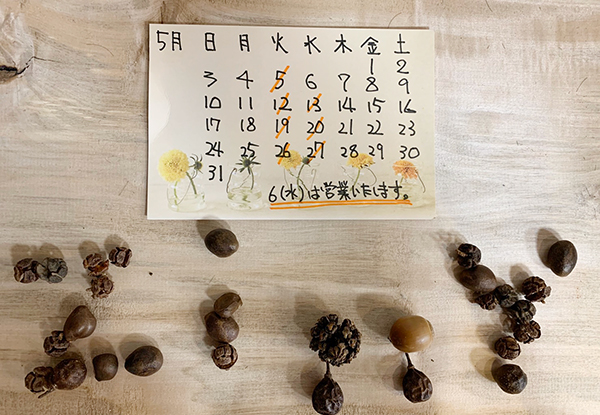 5月 日 月 火 水 木 金 土
1 2
3 4 5 6 7 8 9
10 11 12 13 14 15 16
17 18 19 20 21 22 23
24 25 26 27 28 29 30
31
6(水)は営業いたします。